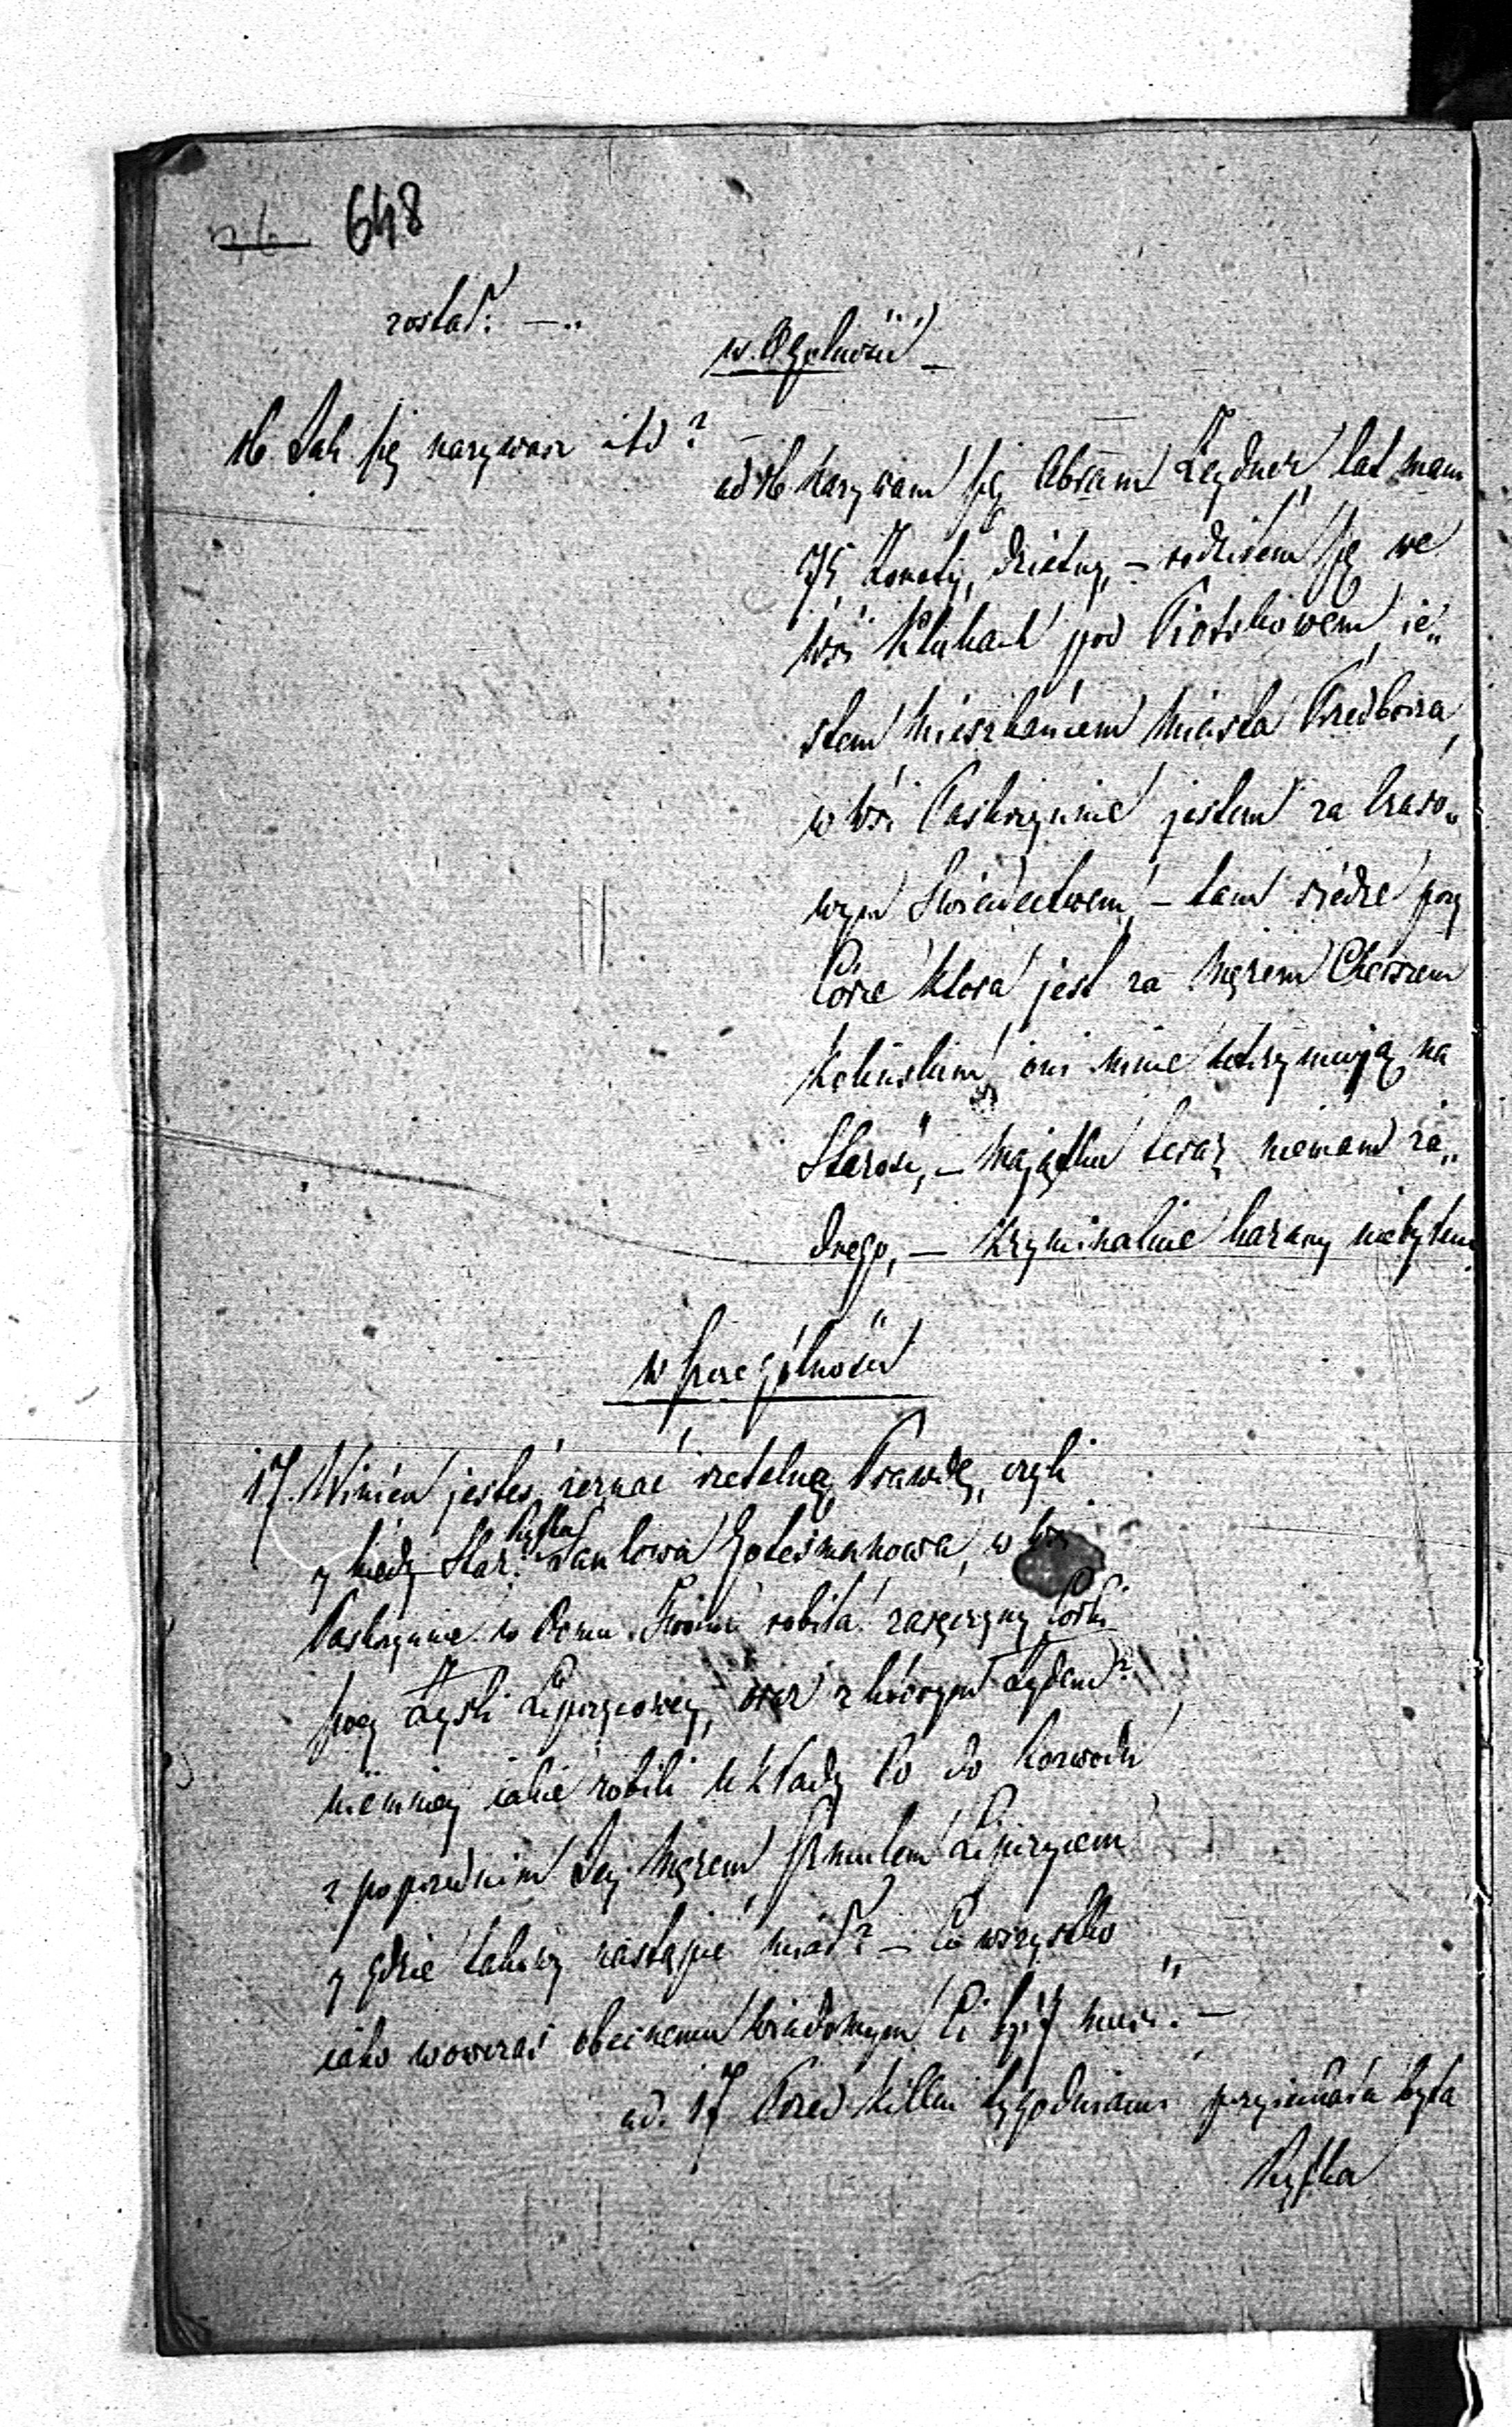 648
został? —
w Ogolności —
16 Jak się nazywasz itd?
ad 16 Nazywam się Abram Zeydner, lat mam
75, żonaty, dzietny, — rodziłem się we
Wsi Klukach pod Piotrkowem, ie„
stem Mieszkańcem Miasta Przedborza,
w Wsi Paskrzynie jestem za Czaso„
wym Swiadectwem, — tam siedzę przy
Córce która jest za Mężem
oni mnie utrzymują na
Starość, — Majątku teraz niemam ża„
dnego, — Kryminalnie karany niebyłem
w Szczegolności
17. Winien jesteś zeznać rzetelną Prawdę, czyli
y kiedy Star. Ryfka w Wsi
Paskrzynie w Domu Twoim robiła zaręczyny Córki
swey Łipszycowey, oraz z którym Żydem?
niemniey iakie robili Układy Co do Rozwodu
z poprzednim Jey Mężem Szmulem Lipszycem
y gdzie takowy nastąpić miał? — Co wszystko
iako wowczas obecnemu wiadomym Ci być musi. —
ad. 17 Przed kilku tygodniami przyiechała była
Ryfka